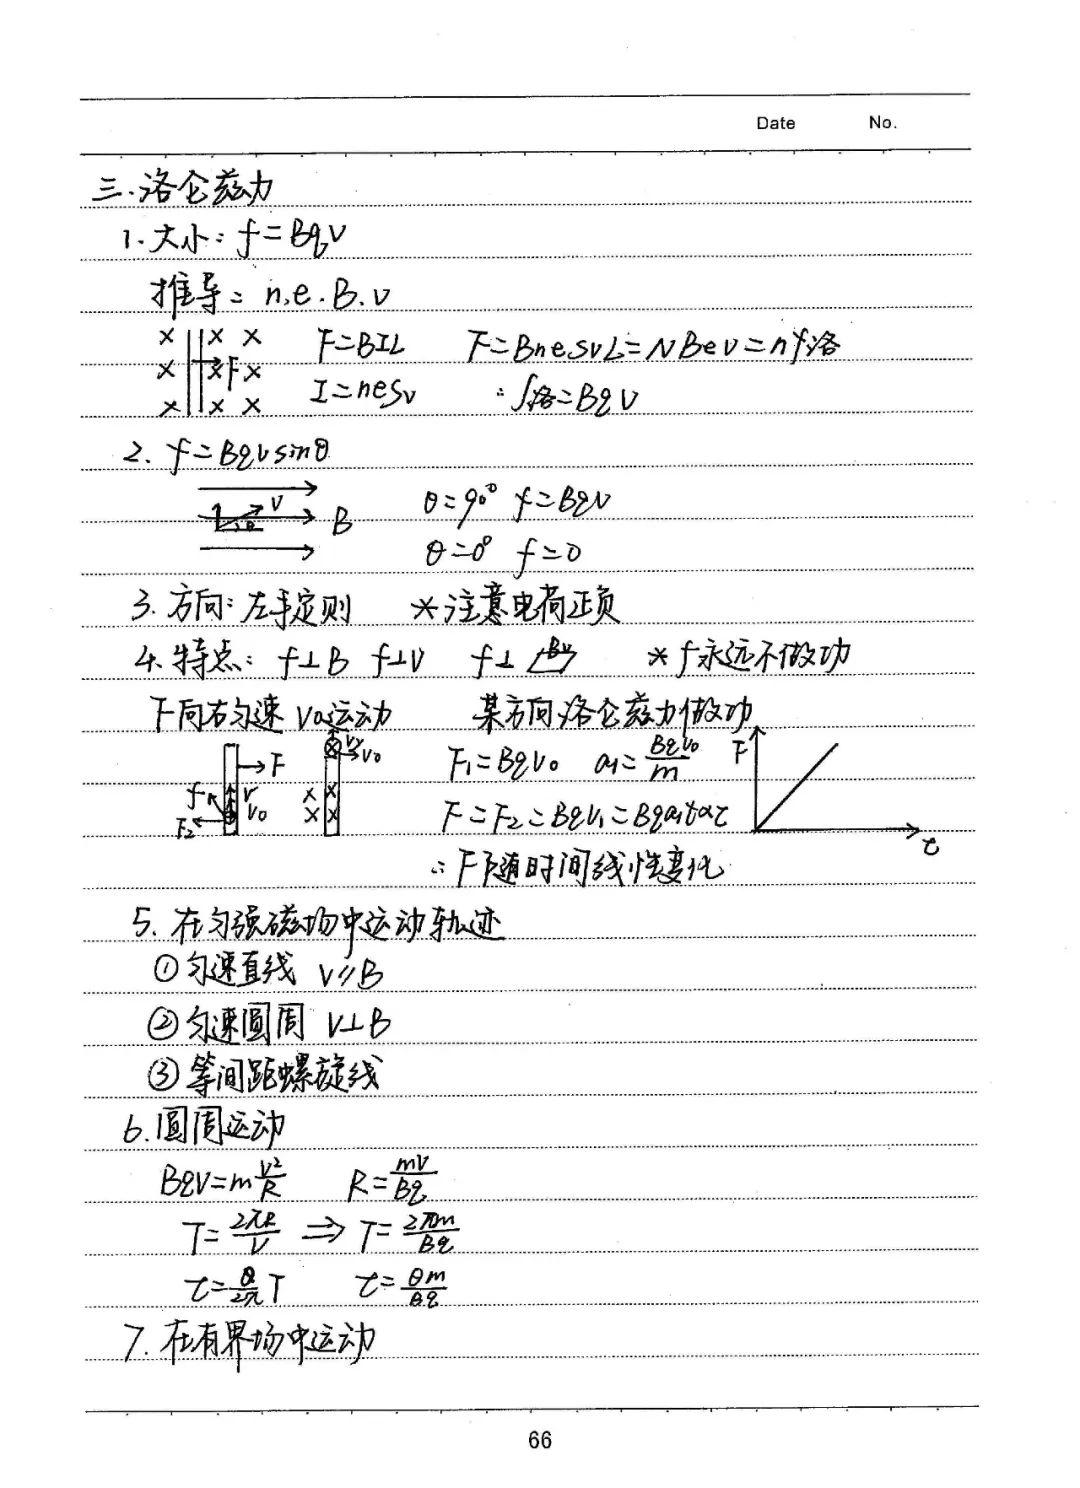 Date No.
三.洛仑兹力
1.大小:f=BqV
推导: n.e.B.v
× × ×
× × F ×
× × ×
F=BIL F=BnesvL=NBev=nf洛
I=nesv ∴f洛=Bqv
2. f=Bqvsinθ
V θ B
θ=90° f=Bqv
θ=0° f=0
3.方向:左手定则 *注意电荷正负
4.特点: f⊥B f⊥V f⊥ Bv *f永远不做功
F向右匀速V₀运动 某方向洛仑兹力做功
F f v V₀ F₂
Vy V₀ × × × ×
F₁=BqV₀ a₁=BqV₀/m F
F=F₂=BqV₁=Bqa₁t∝t t
∴F随时间线性变化
5.在匀强磁场中运动轨迹
①匀速直线 V∥B
②匀速圆周 V⊥B
③等间距螺旋线
6.圆周运动
BqV=mV²/R R=mV/Bq
T=2πR/V ⇒ T=2πm/Bq
t=θ/2π T t=θm/Bq
7.在有界场中运动
66